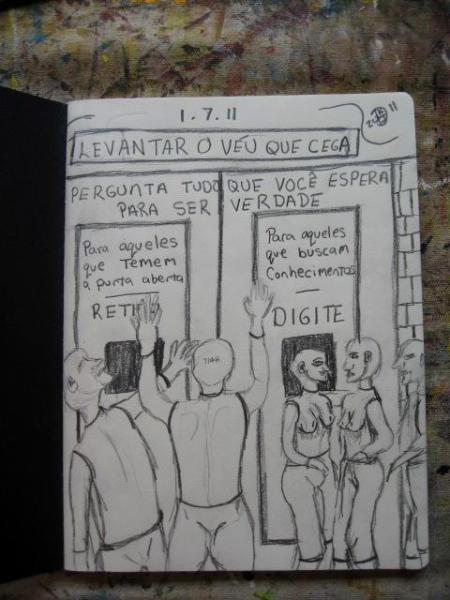 1.7.11
11
LEVANTAR O VÉU QUE CEGA
PERGUNTA TUDO QUE VOCÊ ESPERA
PARA SER VERDADE
Para àqueles
que Temem
a purta aberta
Para aqueles
que buscam
Conhecimentos
DIGITE